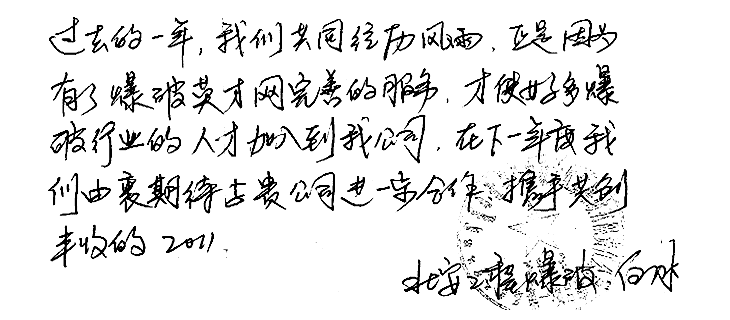 过去的一年,我们共同经历风雨,正是因为
有了爆破英才网完善的服务,才使好多爆
破行业的人才加入到我公司,在下一年度我
们由衷期待与贵公司进一步合作 携手共创
丰收的2011.
爆破